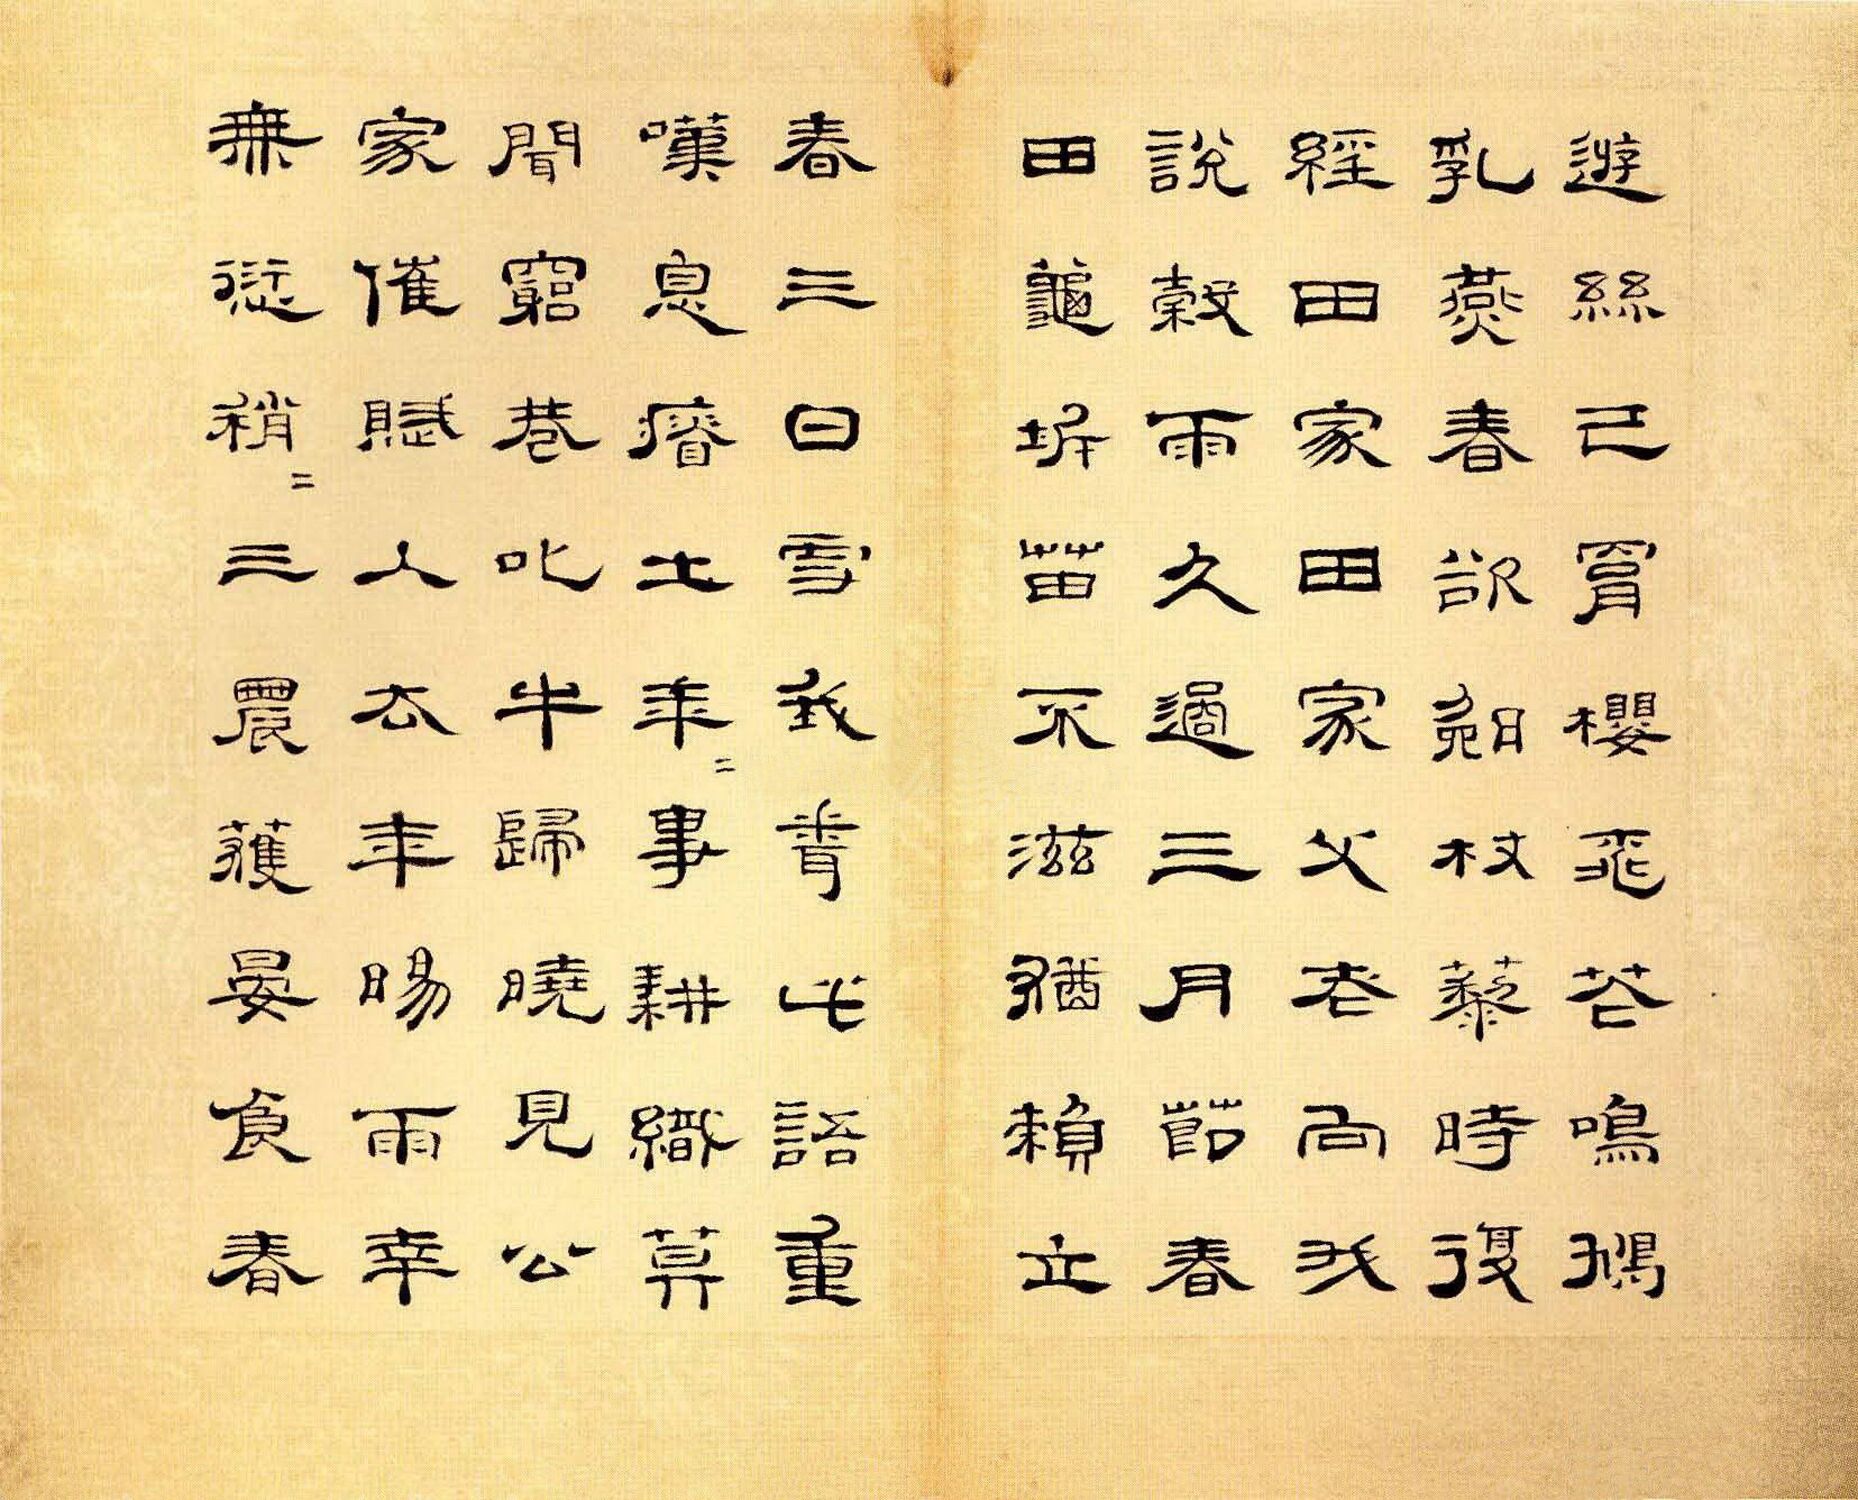 遊絲已罥櫻飛花鳴鳩
乳燕春欲晚杖藜時復
經田家田家父老向我
說穀雨久過三月節春
田龜坼苗不滋猶賴立
春三日雪我聞此語重
嘆息瘠土年〻事耕織莫
聞窮巷叱牛歸曉見公
家催賦入去年暘雨幸
無愆稍〻三農獲晏食春